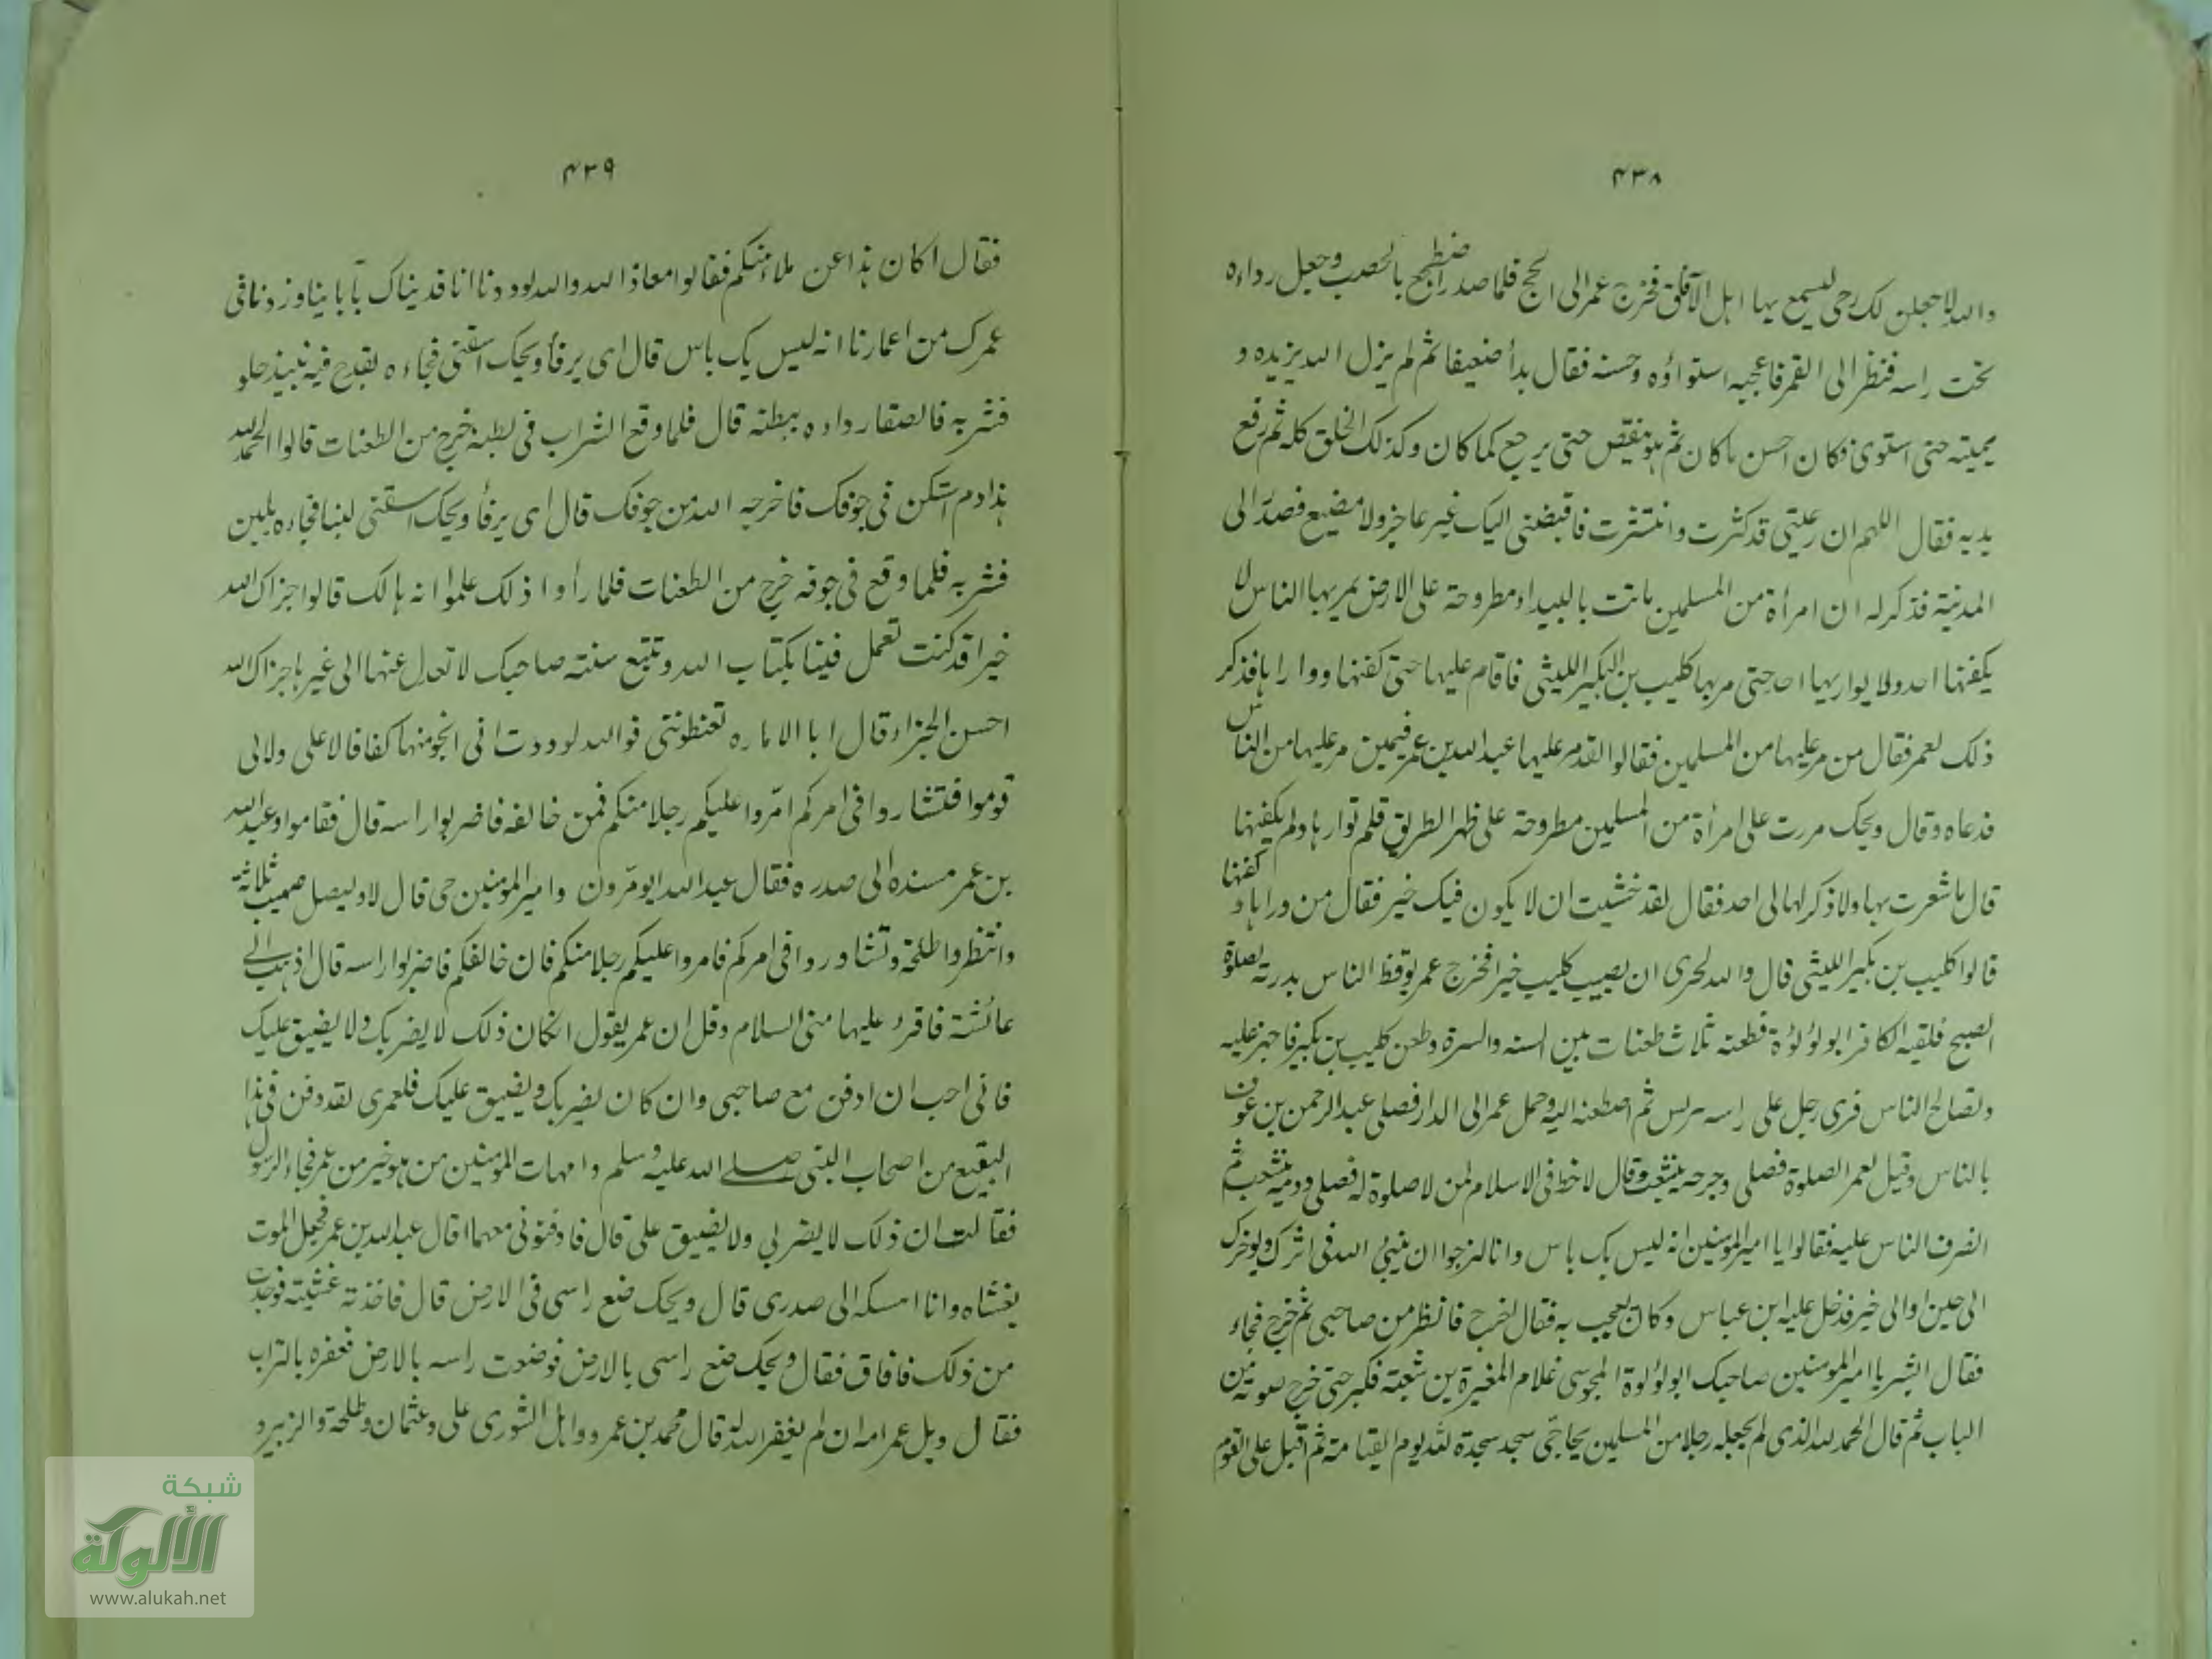 ٤٣٨
والله لاجعلن لك رحى يسمع بها اهل الآفاق فخرج عمر الى الحج فلما صدر اضطجع بالمحصب وجعل رداءه
تحت راسه فنظر الى القمر فاعجبه استواؤه وحسنه فقال بدأ ضعيفا ثم لم يزل الله يزيده و
يميته حتى استوى فكان احسن ما كان ثم هو ينقص حتى يرجع كما كان وكذلك الخلق كله ثم رفع
يديه فقال اللهم ان رعيتى قد كثرت وانتشرت فاقبضنى اليك غير عاجز ولا مضيع فصدر الى
المدينة فذكر له ان امرأة من المسلمين ماتت بالبيداء مطروحة على الارض يمر بها الناس لا
يكفنها احد ولا يواريها احد حتى مر بها كليب بن البكير الليثى فاقام عليها حتى كفنها وواراها فذكر
ذلك لعمر فقال من مر عليها من المسلمين فقالوا لقد مر عليها عبد الله بن عمر فيمن مر عليها من الناس
فدعاه وقال ويحك مررت على امرأة من المسلمين مطروحة على ظهر الطريق فلم توارها ولم تكفنها
قال ما شعرت بها ولا ذكر لها لى احد فقال لقد خشيت ان لا يكون فيك خير فقال من وراها و كفنها
قالوا كليب بن بكير الليثى قال والله لحرى ان يصيب كليب خيرا فخرج عمر يوقظ الناس بدرته لصلوة
الصبح فلقيه الكافر ابو لؤلؤة فطعنه ثلاث طعنات بين السنه والسرة وطعن كليب بن بكير فاجهز عليه
وتصالح الناس فرى رجل على راسه برنس ثم اصطعنه اليه وحمل عمر الى الدار فصلى عبد الرحمن بن عوف
بالناس وقيل لعمر الصلوة فصلى وجرحه يثعب وقال لا حظ فى الاسلام لمن لا صلوة له فصلى ودمه يثعب ثم
انصرف الناس عليه فقالوا يا امير المؤمنين انه ليس بك باس وانا لنرجوا ان ينسئ الله فى اثرك ويوخرك
الى حين اوالى خير فدخل عليه ابن عباس وكان يعجب به فقال اخرج فانظر من صاحبى ثم خرج فجاء
فقال ابشر يا امير المؤمنين صاحبك ابو لؤلوة المجوسى غلام المغيرة بن شعبة فكبر حتى خرج صوته من
الباب ثم قال الحمد لله الذى لم يجعله رجلا من المسلمين يحاجنى سجد سجدة لله يوم القيامة ثم اقبل على القوم
٤٣٩
فقال اكان هذا عن ملاء منكم فقالوا معاذ الله والله لوددنا انا فديناك بآبائنا وزدنا فى
عمرك من اعمارنا انه ليس بك باس قال اى يرفأ ويحك اسقنى فجاءه بقدح فيه نبيذ حلو
فشربه فالصق رداءه ببطنه قال فلما وقع الشراب فى بطنه خرج من الطعنات قالوا الحمد لله
هذا دم استكن فى جوفك فاخرجه الله من جوفك قال اى يرفأ ويحك اسقنى لبنا فجاءه بلبن
فشربه فلما وقع فى جوفه خرج من الطعنات فلما رأوا ذلك علموا انه هالك قالوا جزاك الله
خيرا قد كنت تعمل فينا بكتاب الله وتتبع سنة صاحبك لا تعدل عنها الى غيرها جزاك الله
احسن الجزاء قال ابا الاماره تغبطوننى فوالله لوددت انى انجو منها كفافا لا على ولا لى
قوموا فتشاروا فى امركم امّروا عليكم رجلا منكم فمن خالفه فاضربوا راسه قال فقاموا وعبد الله
بن عمر مسنده الى صدره فقال عبد الله ايومّرون وامير المؤمنين حى قال لا وليصل صهيب ثلاثة
وانتظروا طلحة وتشاوروا فى امركم فامروا عليكم رجلا منكم فان خالفكم فاضربوا راسه قال اذهب الى
عائشة فاقرء عليها منى السلام وقل ان عمر يقول انكان ذلك لا يضر بك ولا يضيق عليك
فانى احب ان ادفن مع صاحبى وان كان يضر بك ويضيق عليك فلعمرى لقد دفن فى هذا
البقيع من اصحاب النبى صلى الله عليه وسلم وامهات المؤمنين من هو خير من عمر فجاء الرسول
فقالت ان ذلك لا يضر بي ولا يضيق على قال فادفنونى معهما قال عبد الله بن عمر فجعل الموت
يغشاه وانا امسكه الى صدرى قال ويحك ضع راسى فى الارض قال فاخذته غشيته فوجدت
من ذلك فافاق فقال ويحك ضع راسى بالارض فوضعت راسه بالارض فعفره بالتراب
فقال ويل عمر امه ان لم يغفر الله له قال محمد بن عمرو واهل الشورى على وعثمان وطلحة والزبير و
شبكة
الألوكة
www.alukah.net